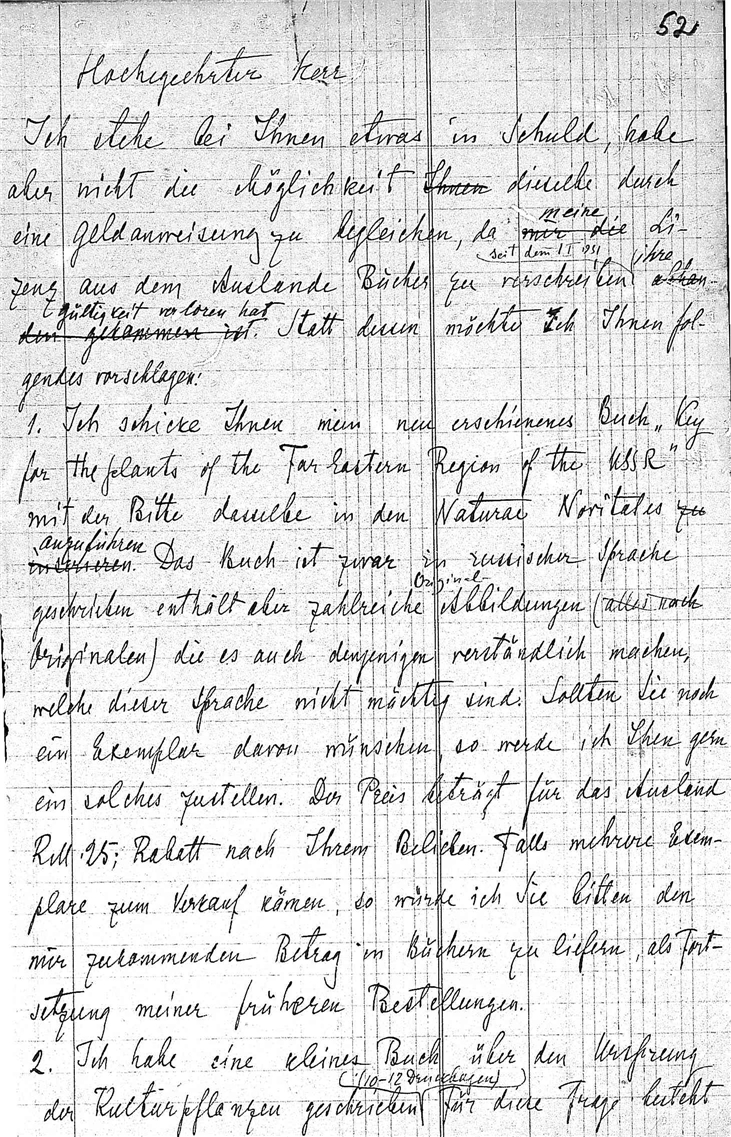 52
Hochgeehrter Herr
Ich stehe bei Ihnen etwas in Schuld, habe
aber nicht die Möglichkeit Ihnen dieselbe durch
eine Geldanweisung zu begleichen, da mir die meine Li-
zenz aus dem Auslande Bücher zu verschreiben seit dem 1 I 1931 ihre abhan-
den gekommen ist. Gültigkeit verloren hat Statt dessen möchte ich Ihnen fol-
gendes vorschlagen:
1. Ich schicke Ihnen mein neu erschienenes Buch „Key
for the plants of the Far Eastern Region of the USSR"
mit der Bitte dasselbe in den Naturae Novitates zu
inserieren. anzuführen Das Buch ist zwar in russischer Sprache
geschrieben enthält aber zahlreiche Original- Abbildungen (alles nach
Originalen) die es auch denjenigen verständlich machen,
welche dieser Sprache nicht mächtig sind. Sollten Sie noch
ein Exemplar davon wünschen, so werde ich Ihen gern
ein solches zustellen. Der Preis beträgt für das Ausland
RM. 25; Rabatt nach Ihrem Belieben. Falls mehrere Exem-
plare zum Verkauf kämen, so würde ich Sie bitten den
mir zukommenden Betrag in Büchern zu liefern, als Fort-
setzung meiner früheren Bestellungen.
2. Ich habe eine kleines Buch über den Ursprung
der Kulturpflanzen geschrieben (10-12 Druckbogen) Für diese Frage besteht